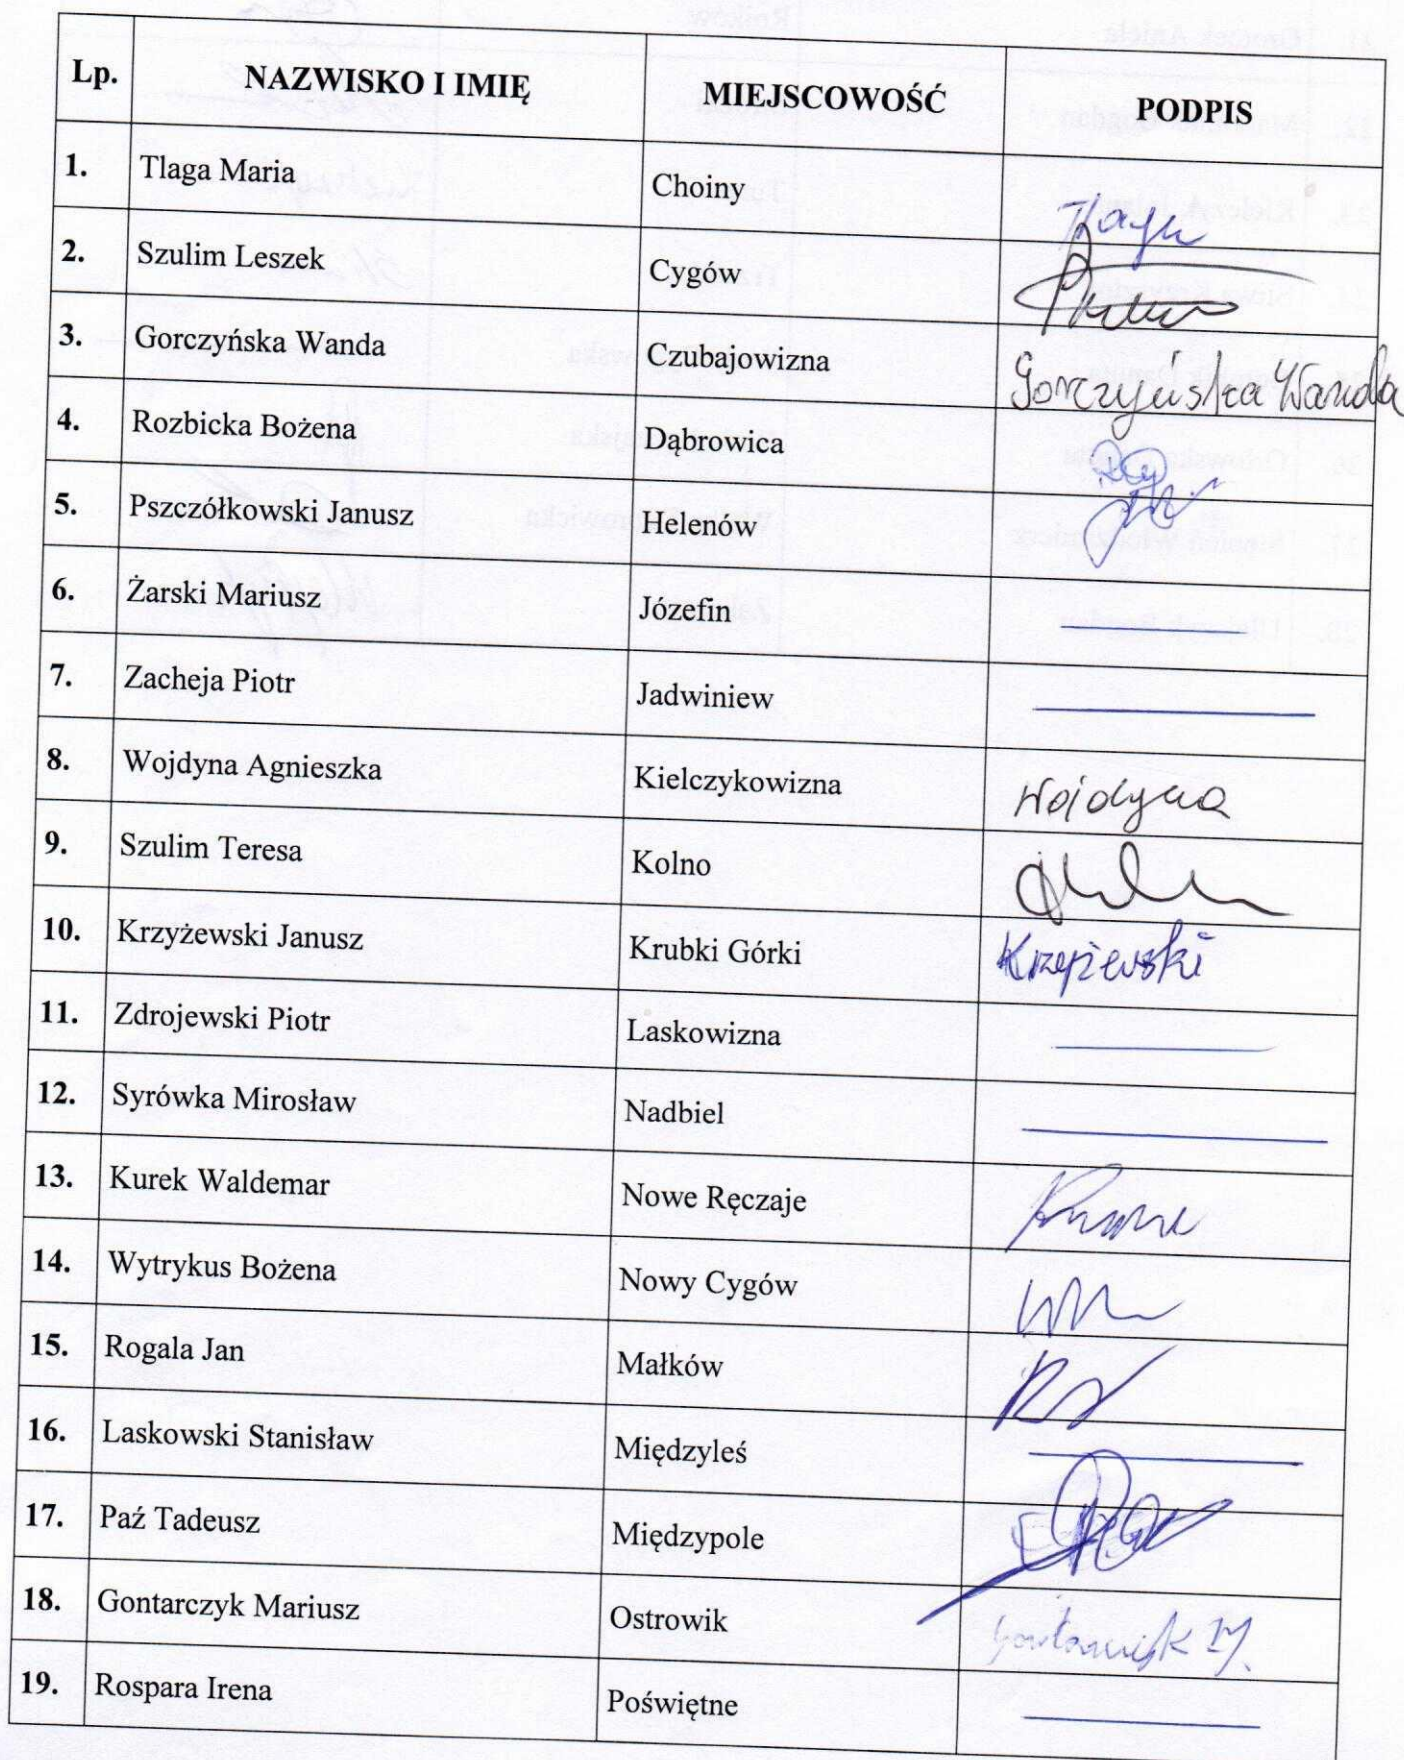 Lp. NAZWISKO I IMIĘ MIEJSCOWOŚĆ PODPIS
1. Tlaga Maria Choiny Tlaga
2. Szulim Leszek Cygów
3. Gorczyńska Wanda Czubajowizna Gorczyńska Wanda
4. Rozbicka Bożena Dąbrowica
5. Pszczółkowski Janusz Helenów
6. Żarski Mariusz Józefin
7. Zacheja Piotr Jadwiniew
8. Wojdyna Agnieszka Kielczykowizna Wojdyna
9. Szulim Teresa Kolno
10. Krzyżewski Janusz Krubki Górki Krzyżewski
11. Zdrojewski Piotr Laskowizna
12. Syrówka Mirosław Nadbiel
13. Kurek Waldemar Nowe Ręczaje
14. Wytrykus Bożena Nowy Cygów
15. Rogala Jan Małków
16. Laskowski Stanisław Międzyleś
17. Paź Tadeusz Międzypole
18. Gontarczyk Mariusz Ostrowik Gontarczyk M.
19. Rospara Irena Poświętne